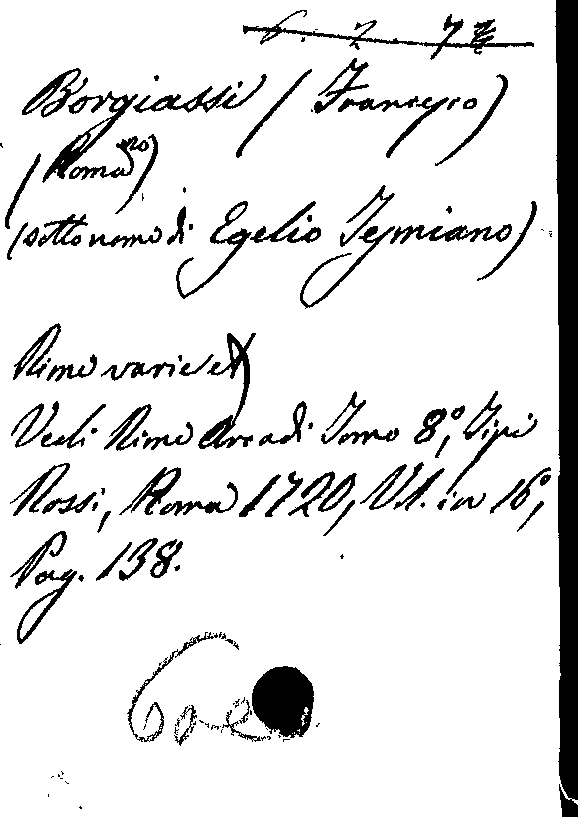 6. 2. 7
Borgiassi (Francesco)
(Romano)
(sotto nome di Egelio Temiano)
Rime varie
Vedi Rime Arcadi Tomo 8º, Tipi
Rossi, Roma 1720, Vol. in 16º,
Pag. 138.